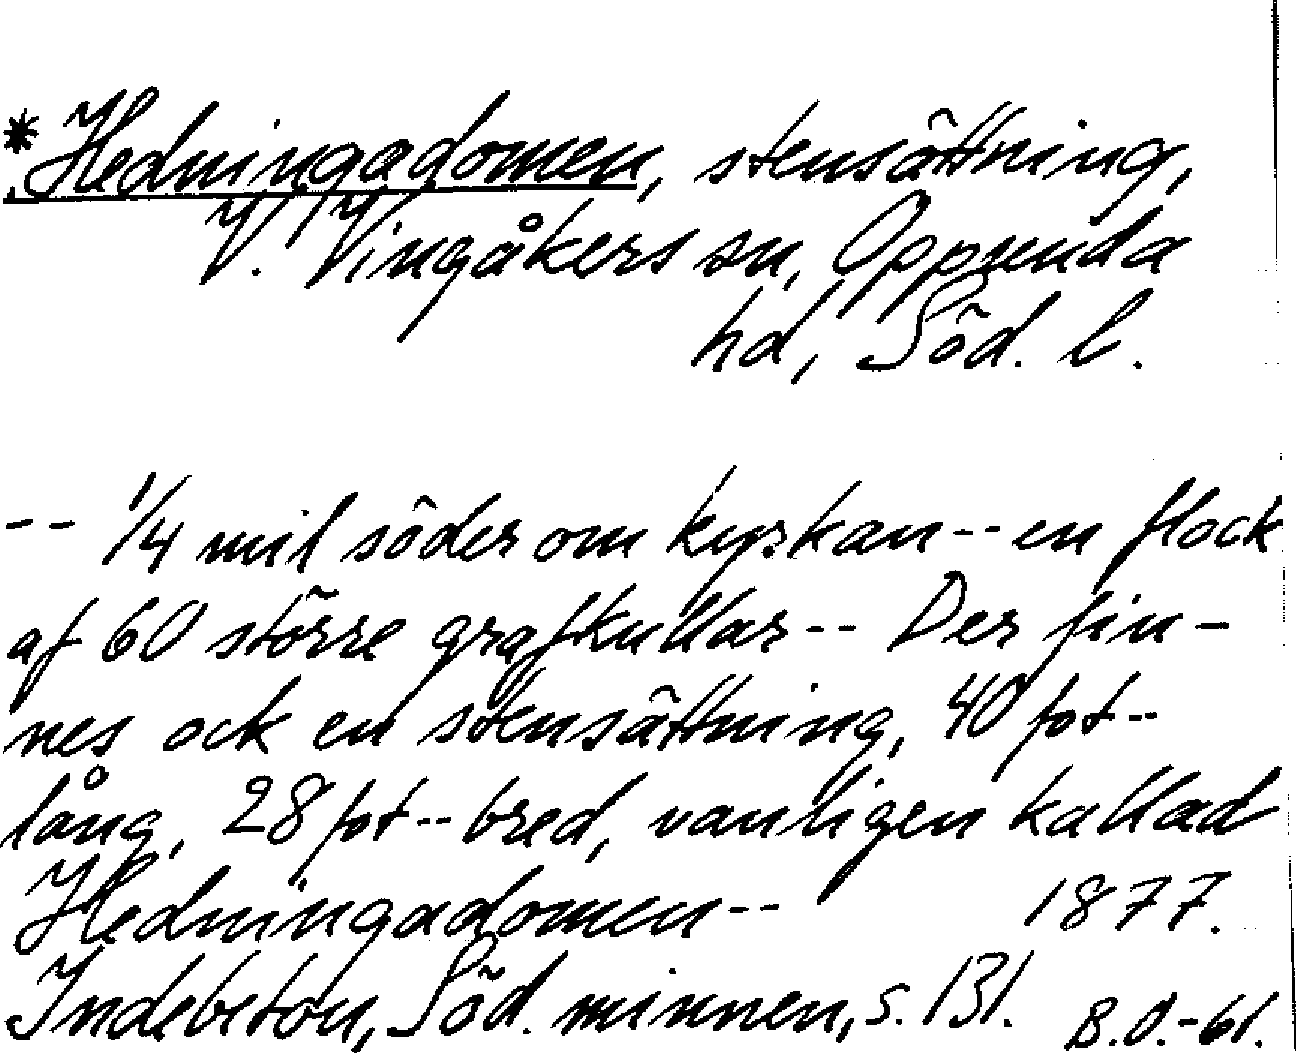 * Hedningadomen, stensättning,
V. Vingåkers sn, Oppunda
hd, Söd. l.
-- 1/4 mil söder om kyrkan -- en flock
af 60 större grafkullar -- Der fin-
nes ock en stensättning, 40 fot --
lång, 28 fot -- bred, vanligen kallad
Hedningadomen -- 1877.
Indebetou, Söd. minnen, s. 131. B.O.-61.